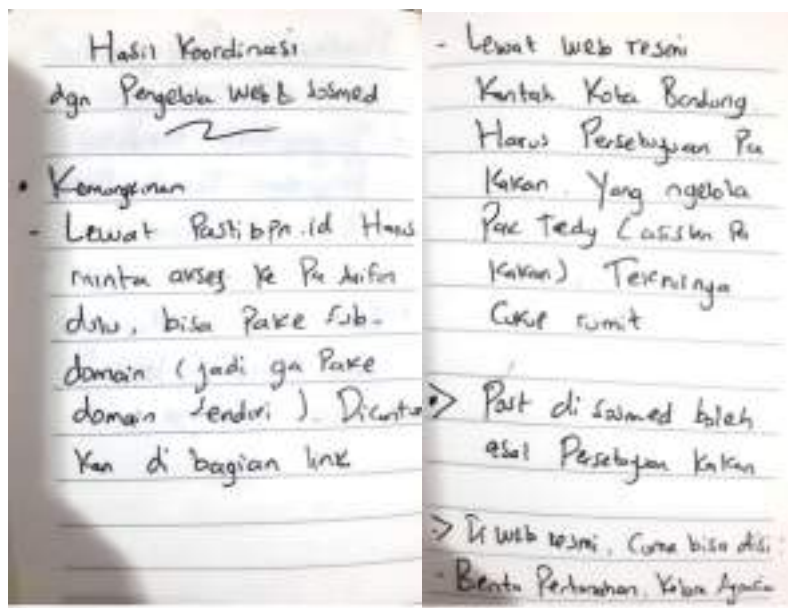 Hasil Koordinasi
dgn Pengelola Web & Sosmed
• Kemungkinan
- Lewat Pastibpn.id Harus
minta akses ke Pa Arifin
dulu, bisa Pake Sub-
domain (jadi ga Pake
domain Sendiri). Dicantum
Kan di bagian link
- Lewat web resmi
Kantah Kota Bandung
Harus Persetujuan Pa
Kakan. Yang ngelola
Pak Tedy (asisten Pa
Kakan) Teknisnya
Cukup rumit
> Post di Sosmed boleh
asal Persetujuan Kakan
> Di web resmi, Cuma bisa disi
- Berita Pertanahan, Kolom